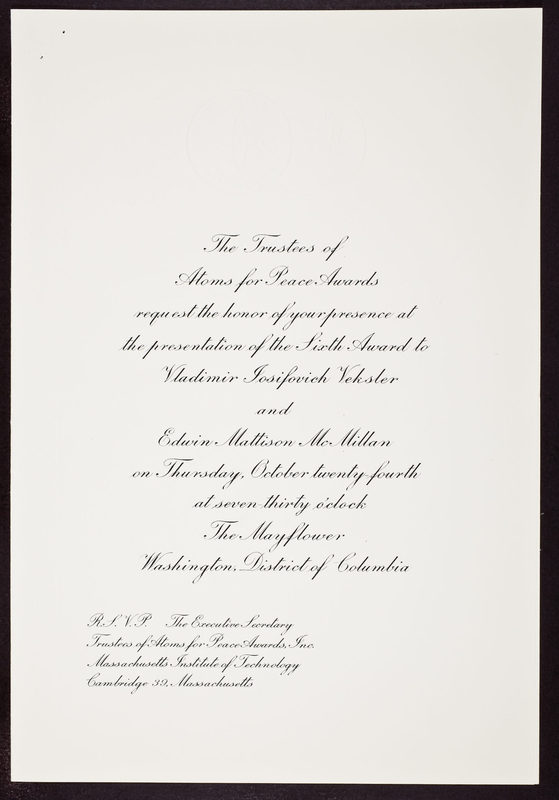 The Trustees of
Atoms for Peace Awards
request the honor of your presence at
the presentation of the Sixth Award to
Vladimir Iosifovich Veksler
and
Edwin Mattison McMillan
on Thursday, October twenty-fourth
at seven-thirty o'clock
The Mayflower
Washington, District of Columbia
R.S.V.P. The Executive Secretary
Trustees of Atoms for Peace Awards, Inc.
Massachusetts Institute of Technology
Cambridge 39, Massachusetts